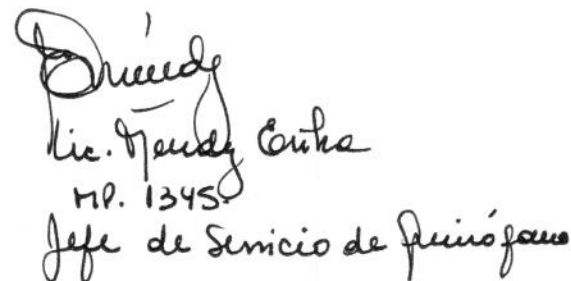 Lic. Mendy Erika
MP. 1345.
Jefe de Servicio de Quirófano